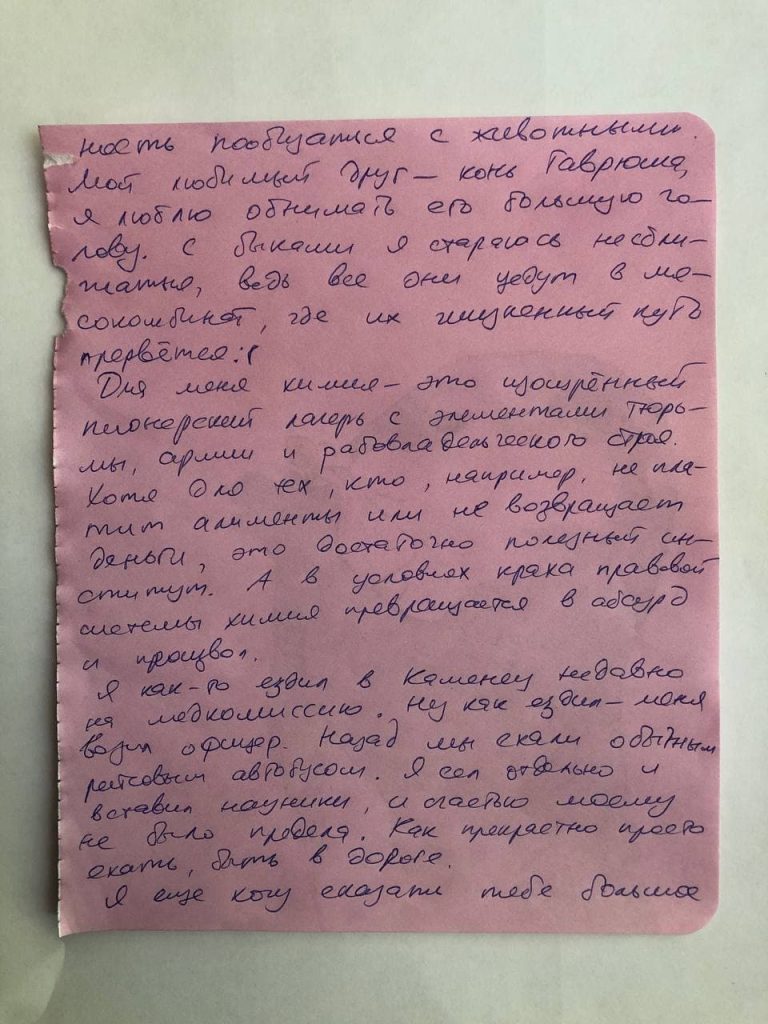 ность пообщаться с животными.
Мой любимый друг — конь Гаврюша,
я люблю обнимать его большую го-
лову. С быками я стараюсь не сбли-
жаться, ведь все они уедут в мя-
сокомбинат, где их жизненный путь
прервётся:(
Для меня химия — это изощрённый
пионерский лагерь с элементами тюрь-
мы, армии и рабовладельческого строя.
Хотя для тех, кто, например, не пла-
тит алименты или не возвращает
деньги, это достаточно полезный ин-
ститут. А в условиях краха правовой
системы химия превращается в абсурд
и произвол.
Я как-то ездил в Каменец недавно
на медкомиссию. Ну как ездил — меня
возил офицер. Назад мы ехали обычным
рейсовым автобусом. Я сел отдельно и
вставил наушники, и счастью моему
не было предела. Как прекрастно просто
ехать, быть в дороге.
Я еще хочу сказать тебе большое